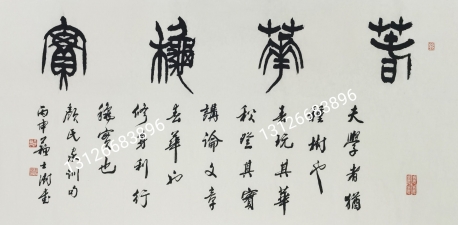 春華穐實
夫學者猶
種樹也
春玩其華
秋登其實
講論文章
春華也
修身利行
穐實也
顏氏家訓句
丙申蘇士澍書
13126683897
13126683897
13126683897